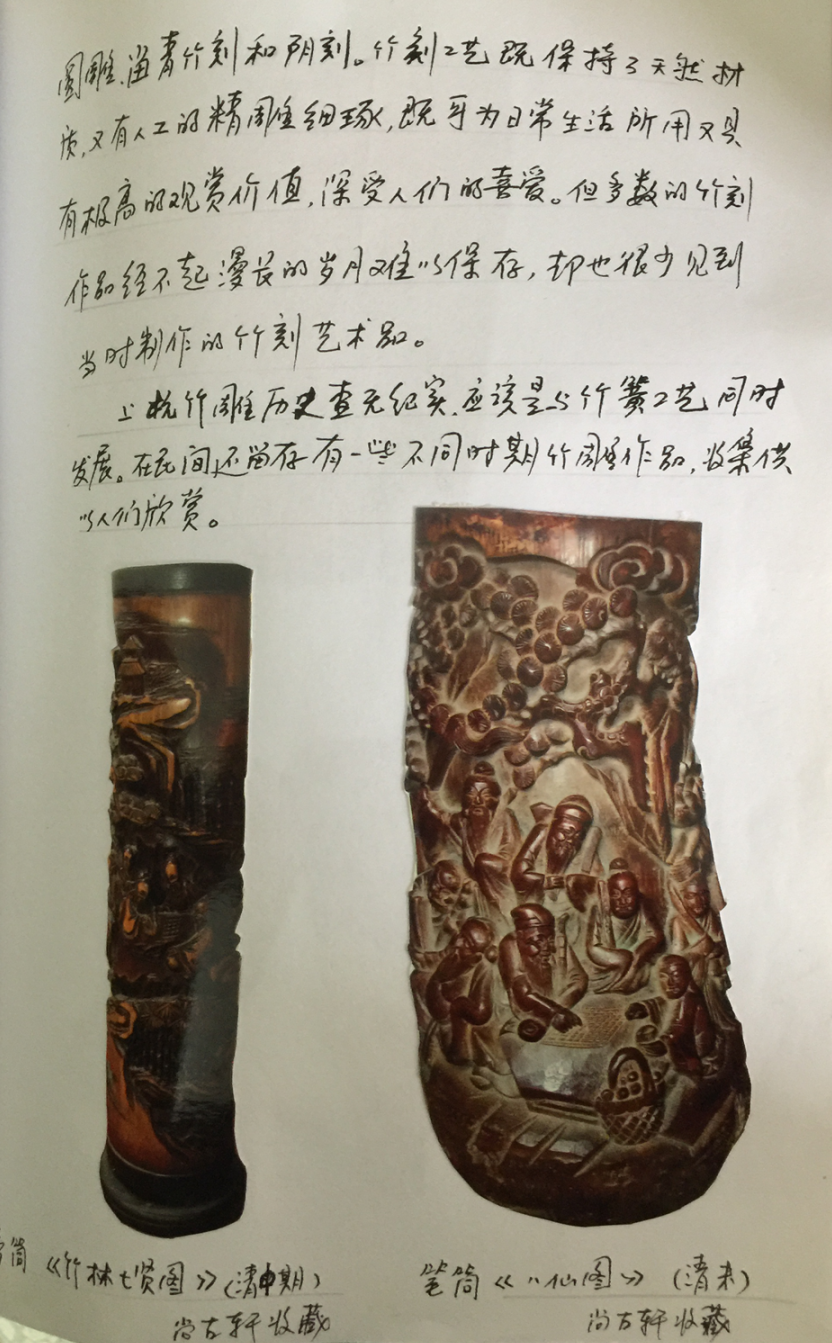 圆雕、留青竹刻和阴刻。竹刻工艺既保持了天然材
质,又有人工的精雕细琢,既可为日常生活所用又具
有极高的观赏价值,深受人们的喜爱。但多数的竹刻
作品经不起漫长的岁月难以保存,却也很少见到
当时制作的竹刻艺术品。
上杭竹雕历史查无纪实,应该是与竹簧工艺同时
发展。在民间还留存有一些不同时期竹雕作品,收集供
以人们欣赏。
筒《竹林七贤图》(清中期)
尚古轩收藏
笔筒《八仙图》(清末)
尚古轩收藏